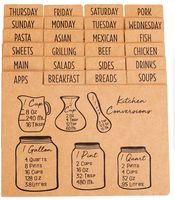 THURSDAY FRIDAY SATURDAY PORK
SUNDAY MONDAY TUESDAY WEDNESDAY
PASTA ASIAN MEXICAN FISH
SWEETS GRILLING BEEF CHICKEN
MAIN SALADS SIDES DRINKS
APPS BREAKFAST BREADS SOUPS
Kitchen
Conversions
1 Cup
8 OZ
240 ML
16 TBS
1 Gallon
4 Quarts
8 Pints
16 Cups
128 OZ
3.8 Litres
1 Pint
2 Cups
16 OZ
480 ML
32 TBS
1 Quart
2 Pints
4 Cups
32 OZ
.95 Litres